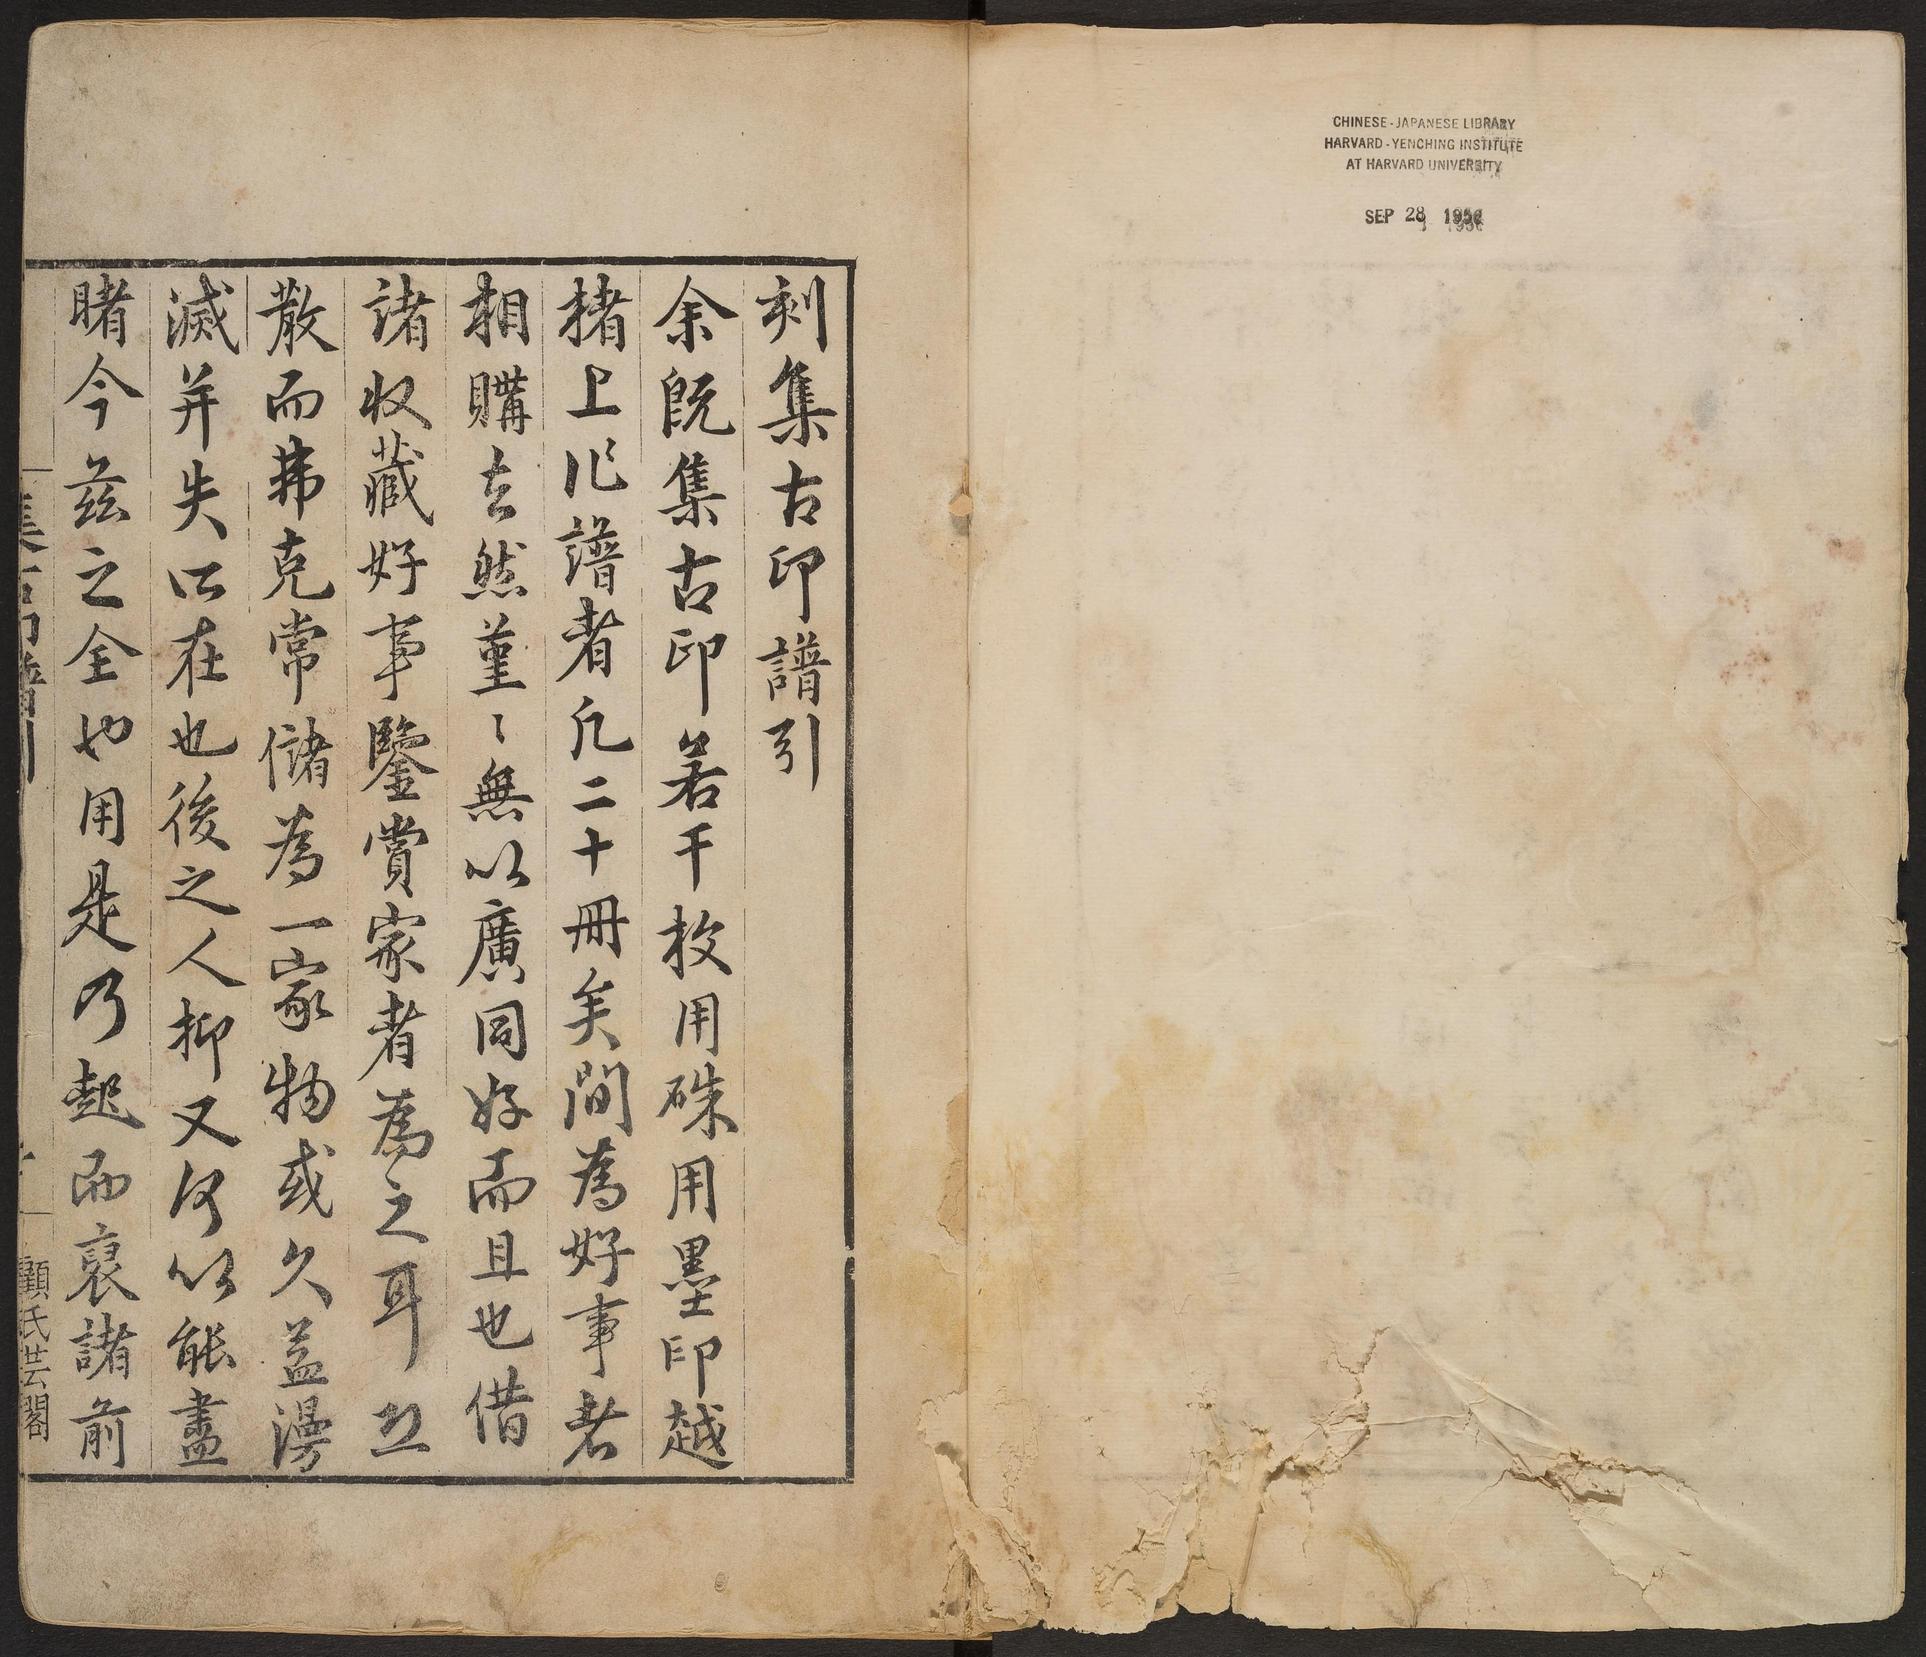 CHINESE-JAPANESE LIBRARY
HARVARD-YENCHING INSTITUTE
AT HARVARD UNIVERSITY
SEP 28 1956
刻集古印譜引
余既集古印若干枚用硃用墨印越
楮上作譜者凡二十冊矣間為好事者
相購去然堇〻無以廣同好而且也借
諸収藏好事鑒賞家者為之耳恐
散而弗克常儲為一家物或久益漫
滅并失所在也後之人抑又何以能盡
睹今茲之全也用是乃起而裒諸前
集古印譜引
顧氏芸閣